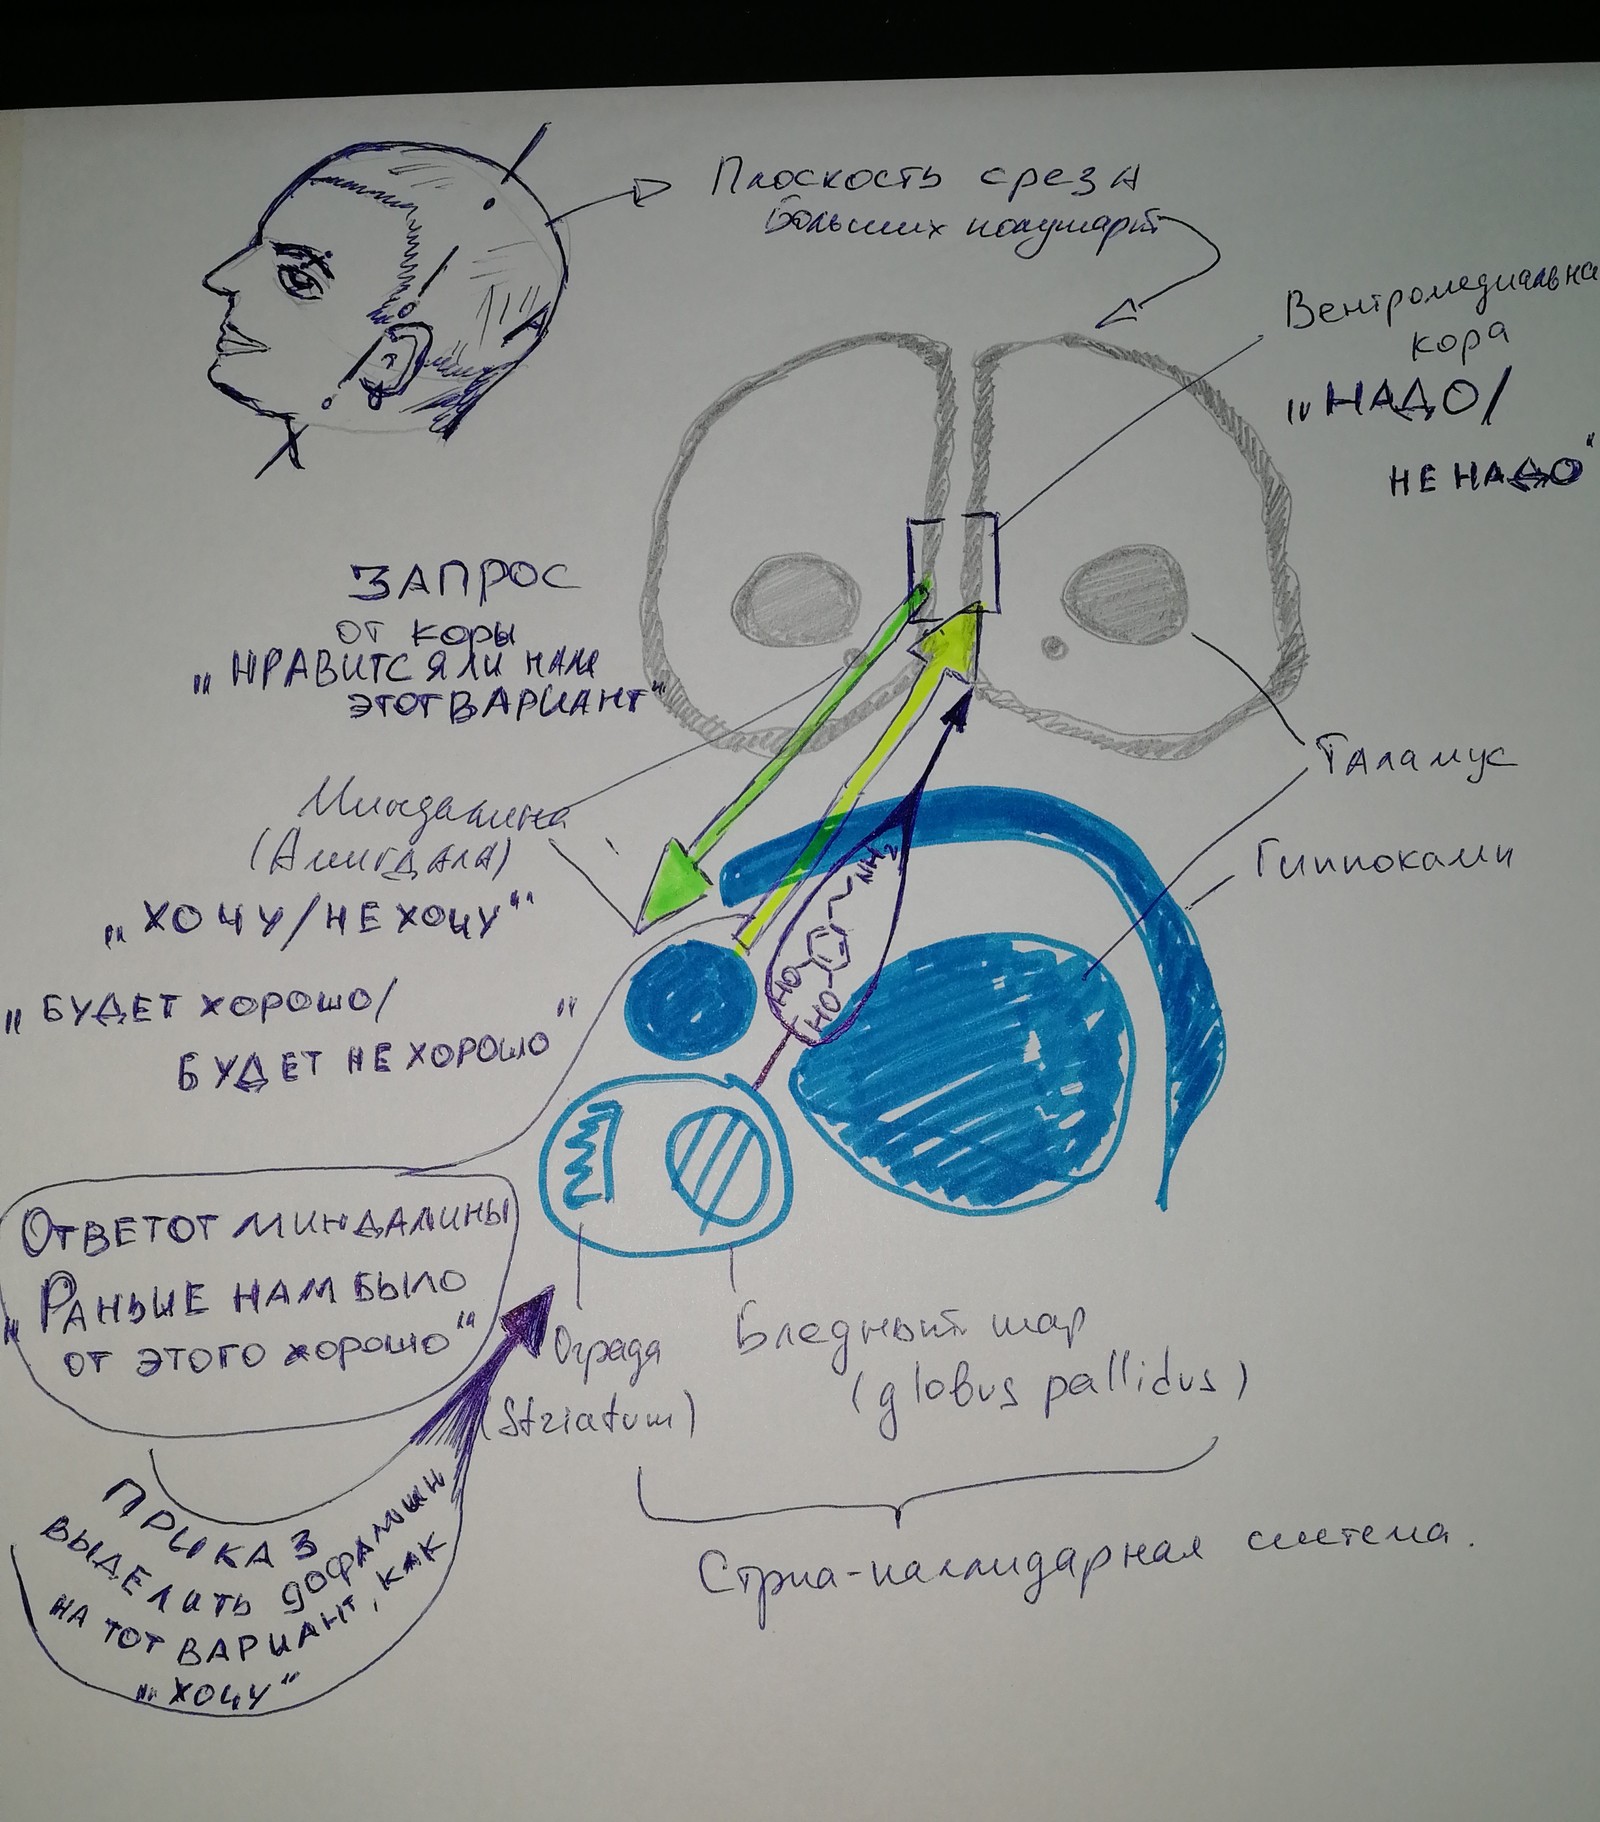 Плоскость среза
Больших полушарий
Вентромедиальна
кора
"НАДО/
НЕ НАДО"
ЗАПРОС
ОТ КОРЫ
"НРАВИТСЯ ЛИ НАМ
ЭТОТ ВАРИАНТ"
Миндалина
(Амигдала)
"ХОЧУ/НЕ ХОЧУ"
"БУДЕТ ХОРОШО/
БУДЕТ НЕ ХОРОШО"
Таламус
Гиппокамп
NH2
HO
HO
ОТВЕТ ОТ МИНДАЛИНЫ
"РАНЬШЕ НАМ БЫЛО
ОТ ЭТОГО ХОРОШО"
Ограда
(Striatum)
Бледный шар
(globus pallidus)
Стриа-паллидарная система.
ПРИКАЗ
ВЫДЕЛИТЬ ДОФАМИН
НА ТОТ ВАРИАНТ, КАК
"ХОЧУ"